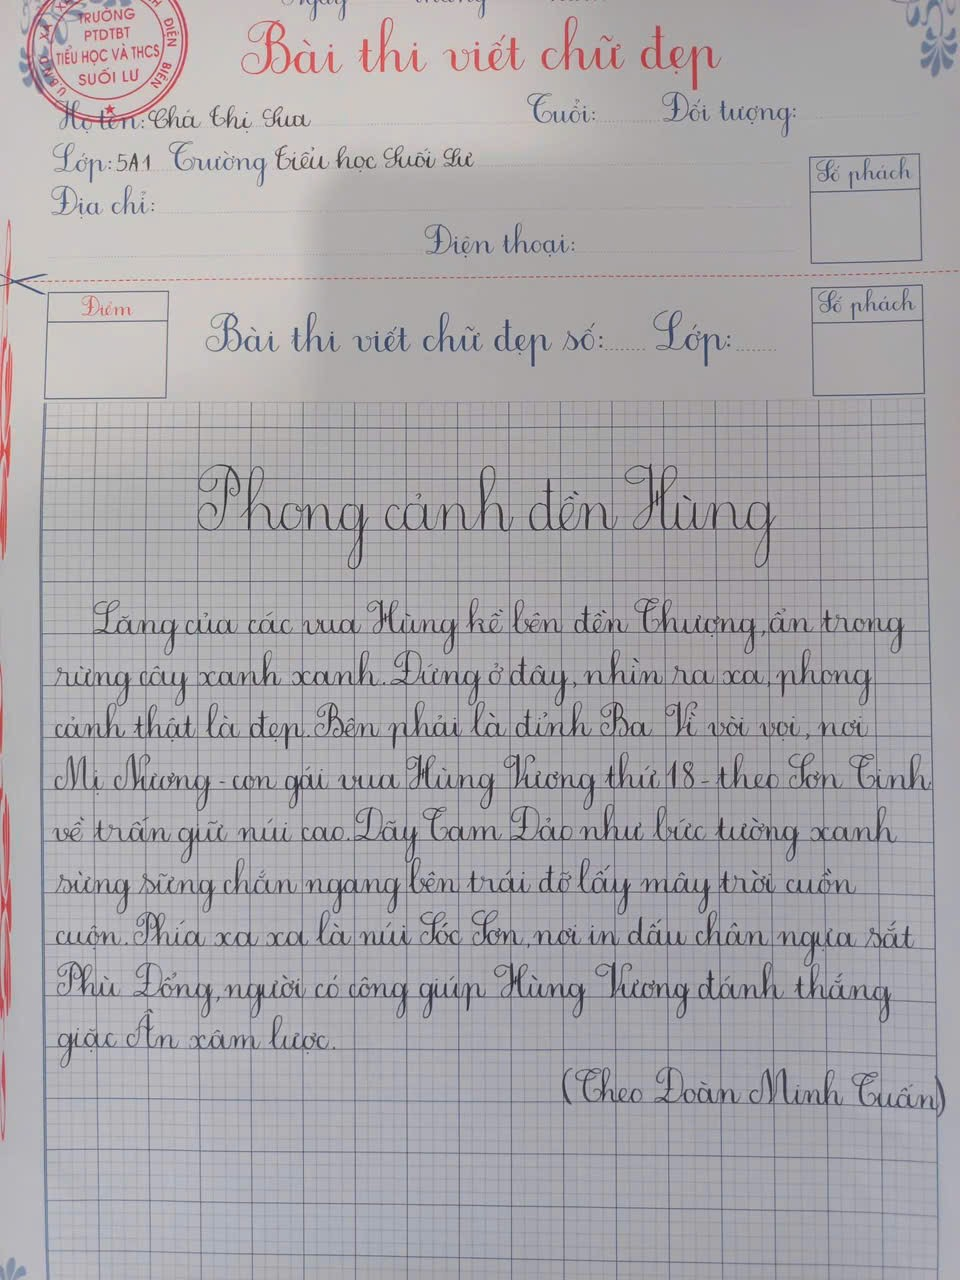 Ngày tháng
TRƯỜNG
PTDTBT
TIỂU HỌC VÀ THCS
SUỐI LƯ
ĐIỆN BIÊN
Bài thi viết chữ đẹp
Họ tên: Chá Thị Sua
Tuổi: Đối tượng:
Lớp: 5A1 Trường Tiểu học Suối Lư
Số phách
Địa chỉ:
Điện thoại:
Điểm
Số phách
Bài thi viết chữ đẹp số: Lớp:
Phong cảnh đền Hùng
Lăng của các vua Hùng kề bên đền Thượng, ẩn trong
rừng cây xanh xanh. Đứng ở đây, nhìn ra xa, phong
cảnh thật là đẹp. Bên phải là đỉnh Ba Vì vòi vọi, nơi
Mị Nương - con gái vua Hùng Vương thứ 18 - theo Sơn Tinh
về trấn giữ núi cao. Dãy Tam Đảo như bức tường xanh
sừng sững chắn ngang bên trái đỡ lấy mây trời cuồn
cuộn. Phía xa xa là núi Sóc Sơn, nơi in dấu chân ngựa sắt
Phù Đổng, người có công giúp Hùng Vương đánh thắng
giặc Ân xâm lược.
(Theo Đoàn Minh Tuấn)